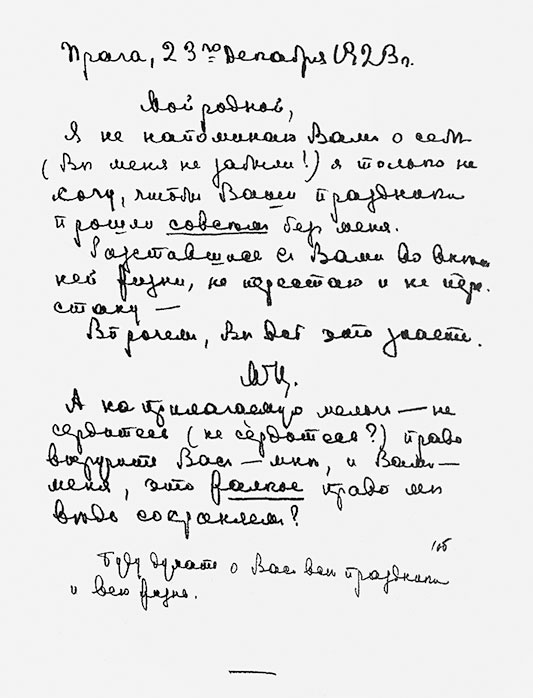 Прага, 23го декабря 1923г.
Мой родной,
Я не напоминаю Вам о себе
(Вы меня не забыли!) я только не
хочу, чтобы Ваши праздники
прошли совсем без меня.
Расставшись с Вами во внеш-
ней жизни, не перестаю и не пере-
стану —
Впрочем, Вы всё это знаете.
МЦ.
А на прилагаемую мелочь — не
сердитесь (не сердитесь?) право
выручить Вас — мне, и Вам —
меня, это жалкое право мы
ведь сохраняем?
Буду думать о Вас все праздники
и всю жизнь.